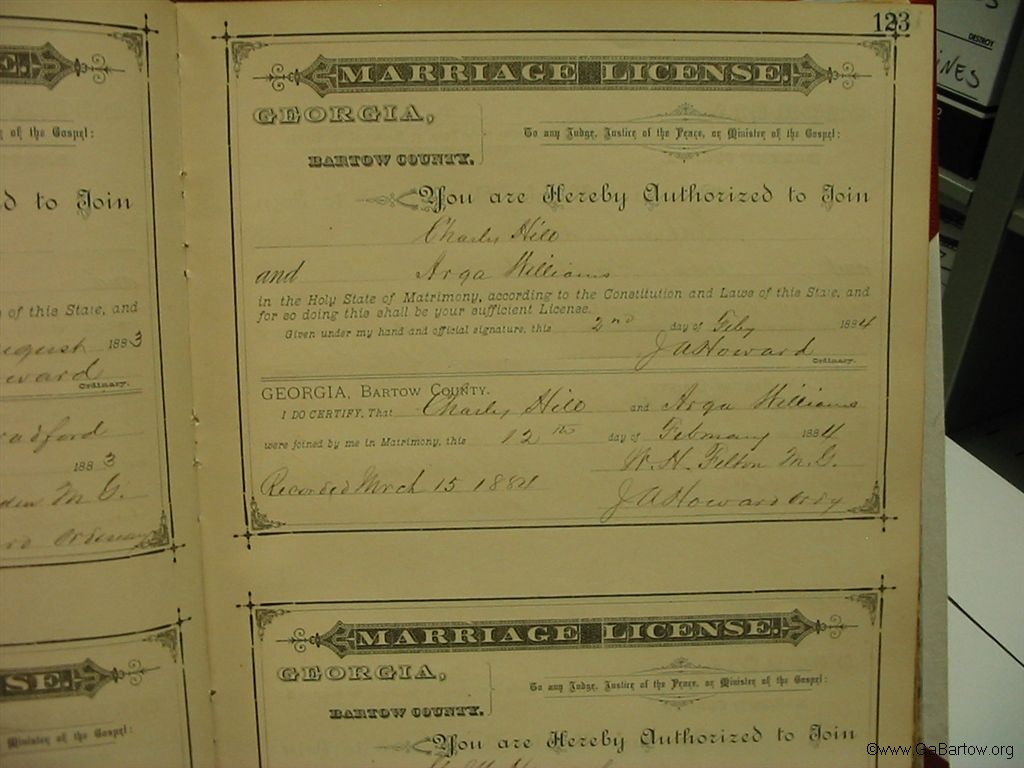 123
MARRIAGE LICENSE.
GEORGIA,
To any Judge, Justice of the Peace, or Minister of the Gospel:
BARTOW COUNTY.
You are Hereby Authorized to Join
Charley Hill
and Arga Williams
in the Holy State of Matrimony, according to the Constitution and Laws of this State, and
for so doing this shall be your sufficient License.
Given under my hand and official signature, this 2nd day of Feby 1884
J A Howard
Ordinary.
GEORGIA, BARTOW COUNTY.
I DO CERTIFY, That Charley Hill and Arga Williams
were joined by me in Matrimony, this 12th day of February 1884
W. H. Felton M. G.
Recorded Mrch 15 1884
J A Howard Ordy
MARRIAGE LICENSE.
GEORGIA,
To any Judge, Justice of the Peace, or Minister of the Gospel:
BARTOW COUNTY.
You are Hereby Authorized to Join
E.
of the Gospel:
d to Join
of this State, and
August 1883
oward
Ordinary.
radford
1883
den M. G.
SE.
Minister of the Gospel:
DESTROY
INES
©www.GaBartow.org